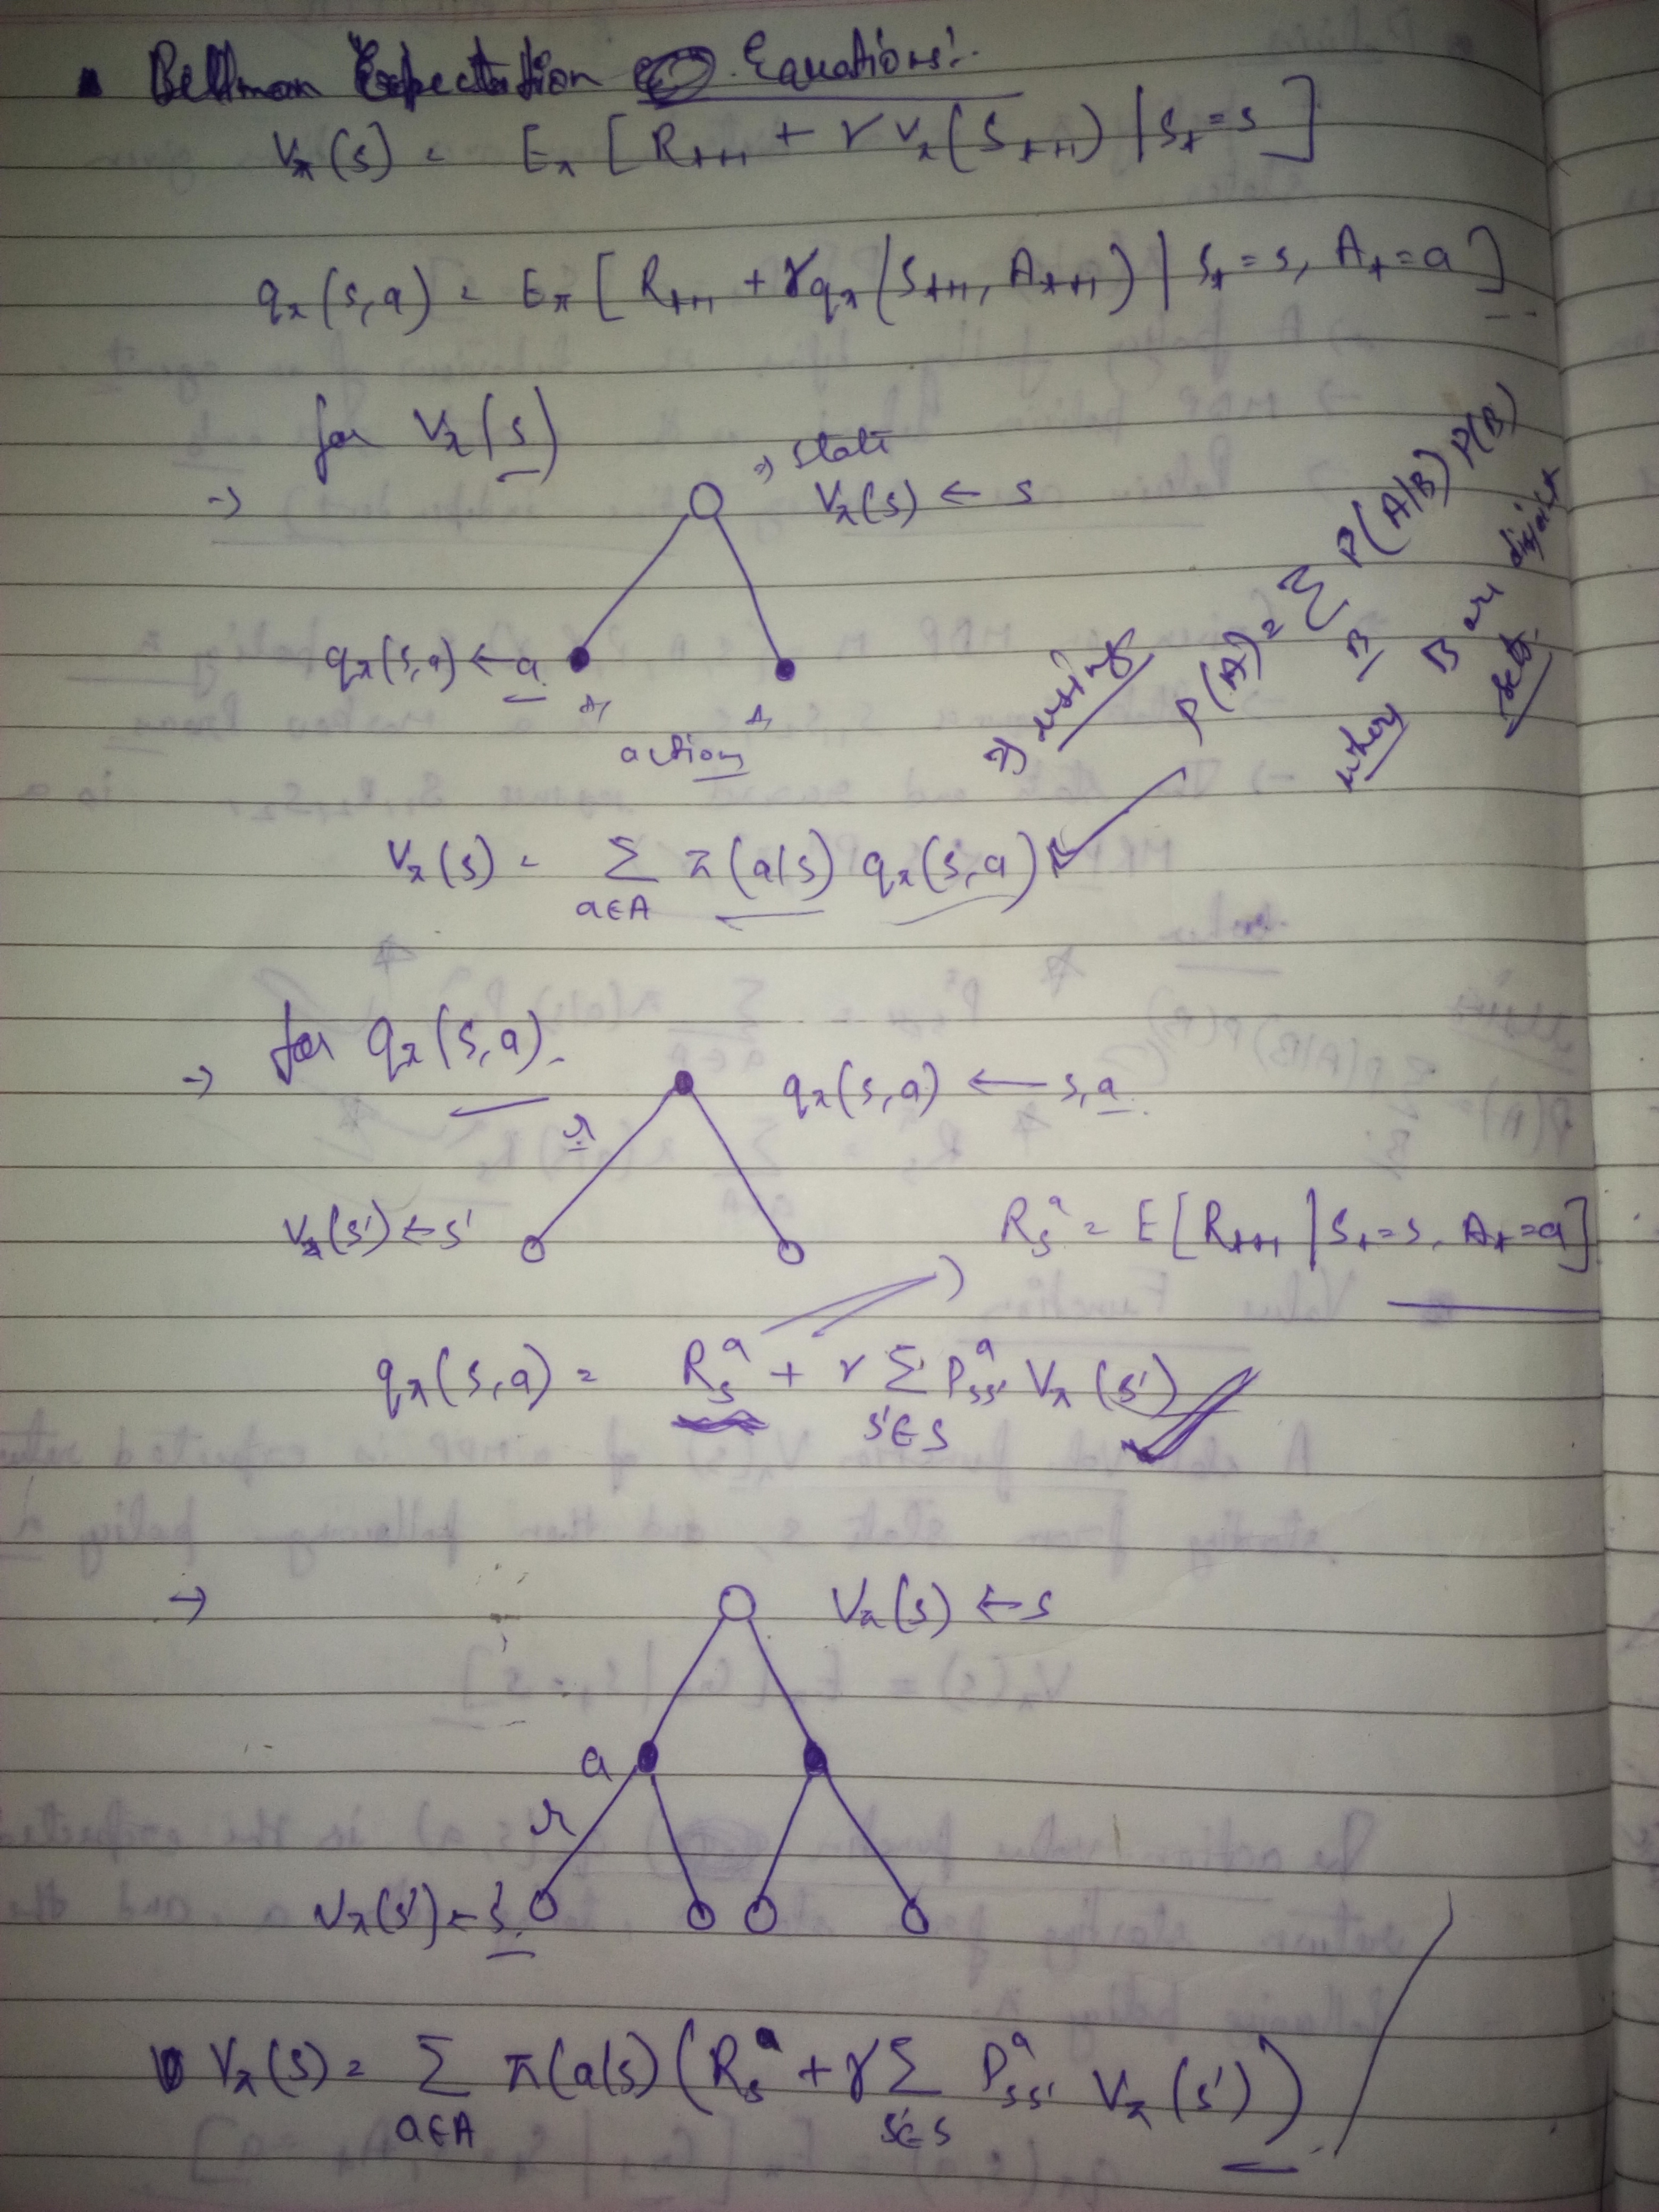 Bellman Expectation Equations:
Vπ(s) = Eπ [ Rt+1 + γ vπ(St+1) | St = s ]
qπ(s,a) = Eπ [ Rt+1 + γ qπ(St+1, At+1) | St = s, At = a ]
for Vπ(s)
→ ⇒ state
Vπ(s) ← s
qπ(s,a) ← a
action
⇒ using P(A) = Σ_B P(A|B) P(B)
where B are disjoint sets.
Vπ(s) = Σ_{a∈A} π(a|s) qπ(s,a)
→ for qπ(s,a)
qπ(s,a) ← s,a
r
Vπ(s') ← s'
R_s^a = E[Rt+1 | St = s, At = a]
qπ(s,a) = R_s^a + γ Σ_{s'∈S} P_ss'^a Vπ(s')
→ Vπ(s) ← s
a
r
Vπ(s') ← s'
Vπ(s) = Σ_{a∈A} π(a|s) (R_s^a + γ Σ_{s'∈S} P_ss'^a Vπ(s'))